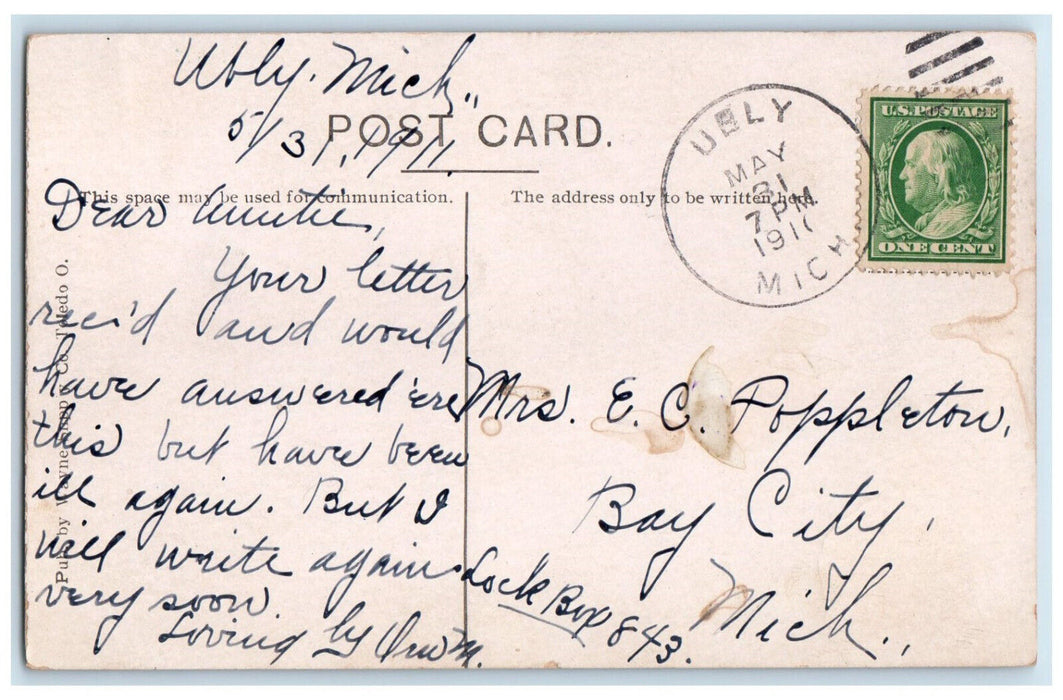 Ubly. Mich.,
5/31, 1911.
POST CARD.
This space may be used for communication.
The address only to be written here.
UBLY
MAY
31
7 PM
1911
MICH
U.S. POSTAGE
ONE CENT
Dear Auntie,
Your letter
rec'd and would
have answered 'ere
this but have been
ill again. But I
will write again
very soon.
Loving
Mrs. E. C. Poppleton,
Bay City,
Mich.,
Lock Box 843.
Pub. by Co. Toledo O.